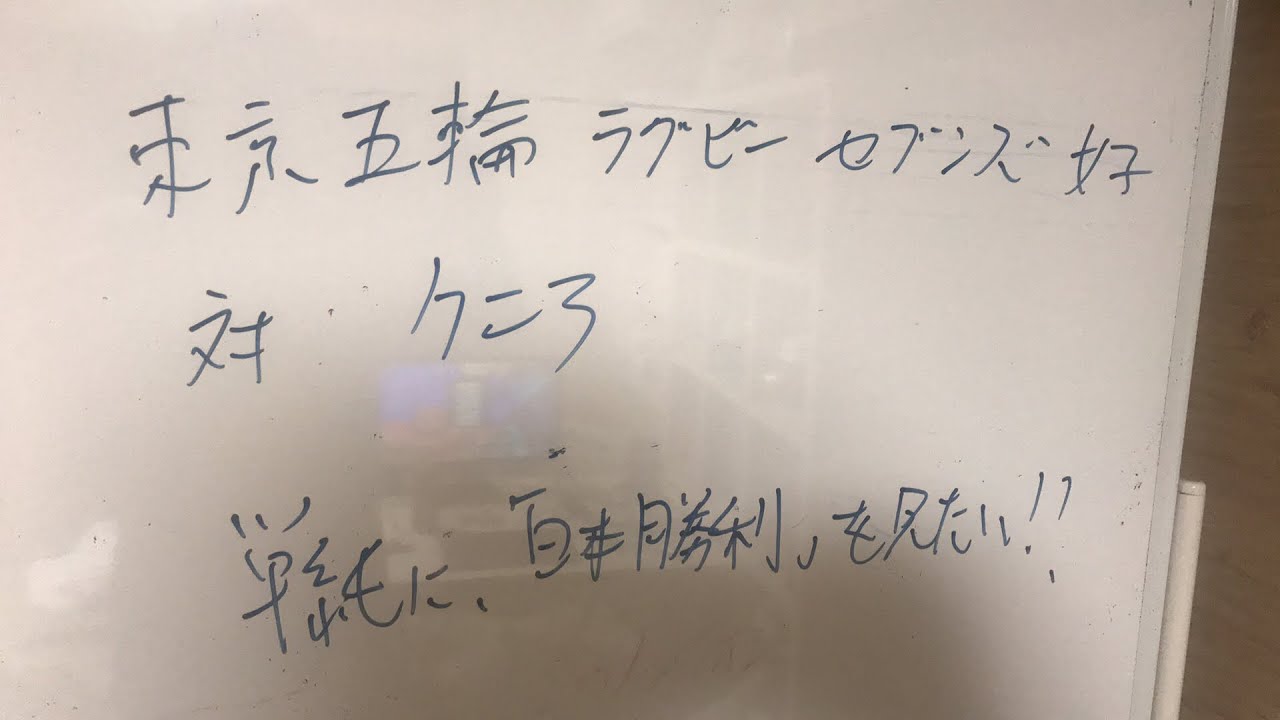 東京五輪 ラグビー セブンズ 女子
対 ケニア
単純に、「日本勝利」を見たい!!